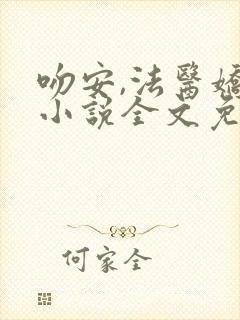 吻安,法醫嬌
小說全文免
何家全